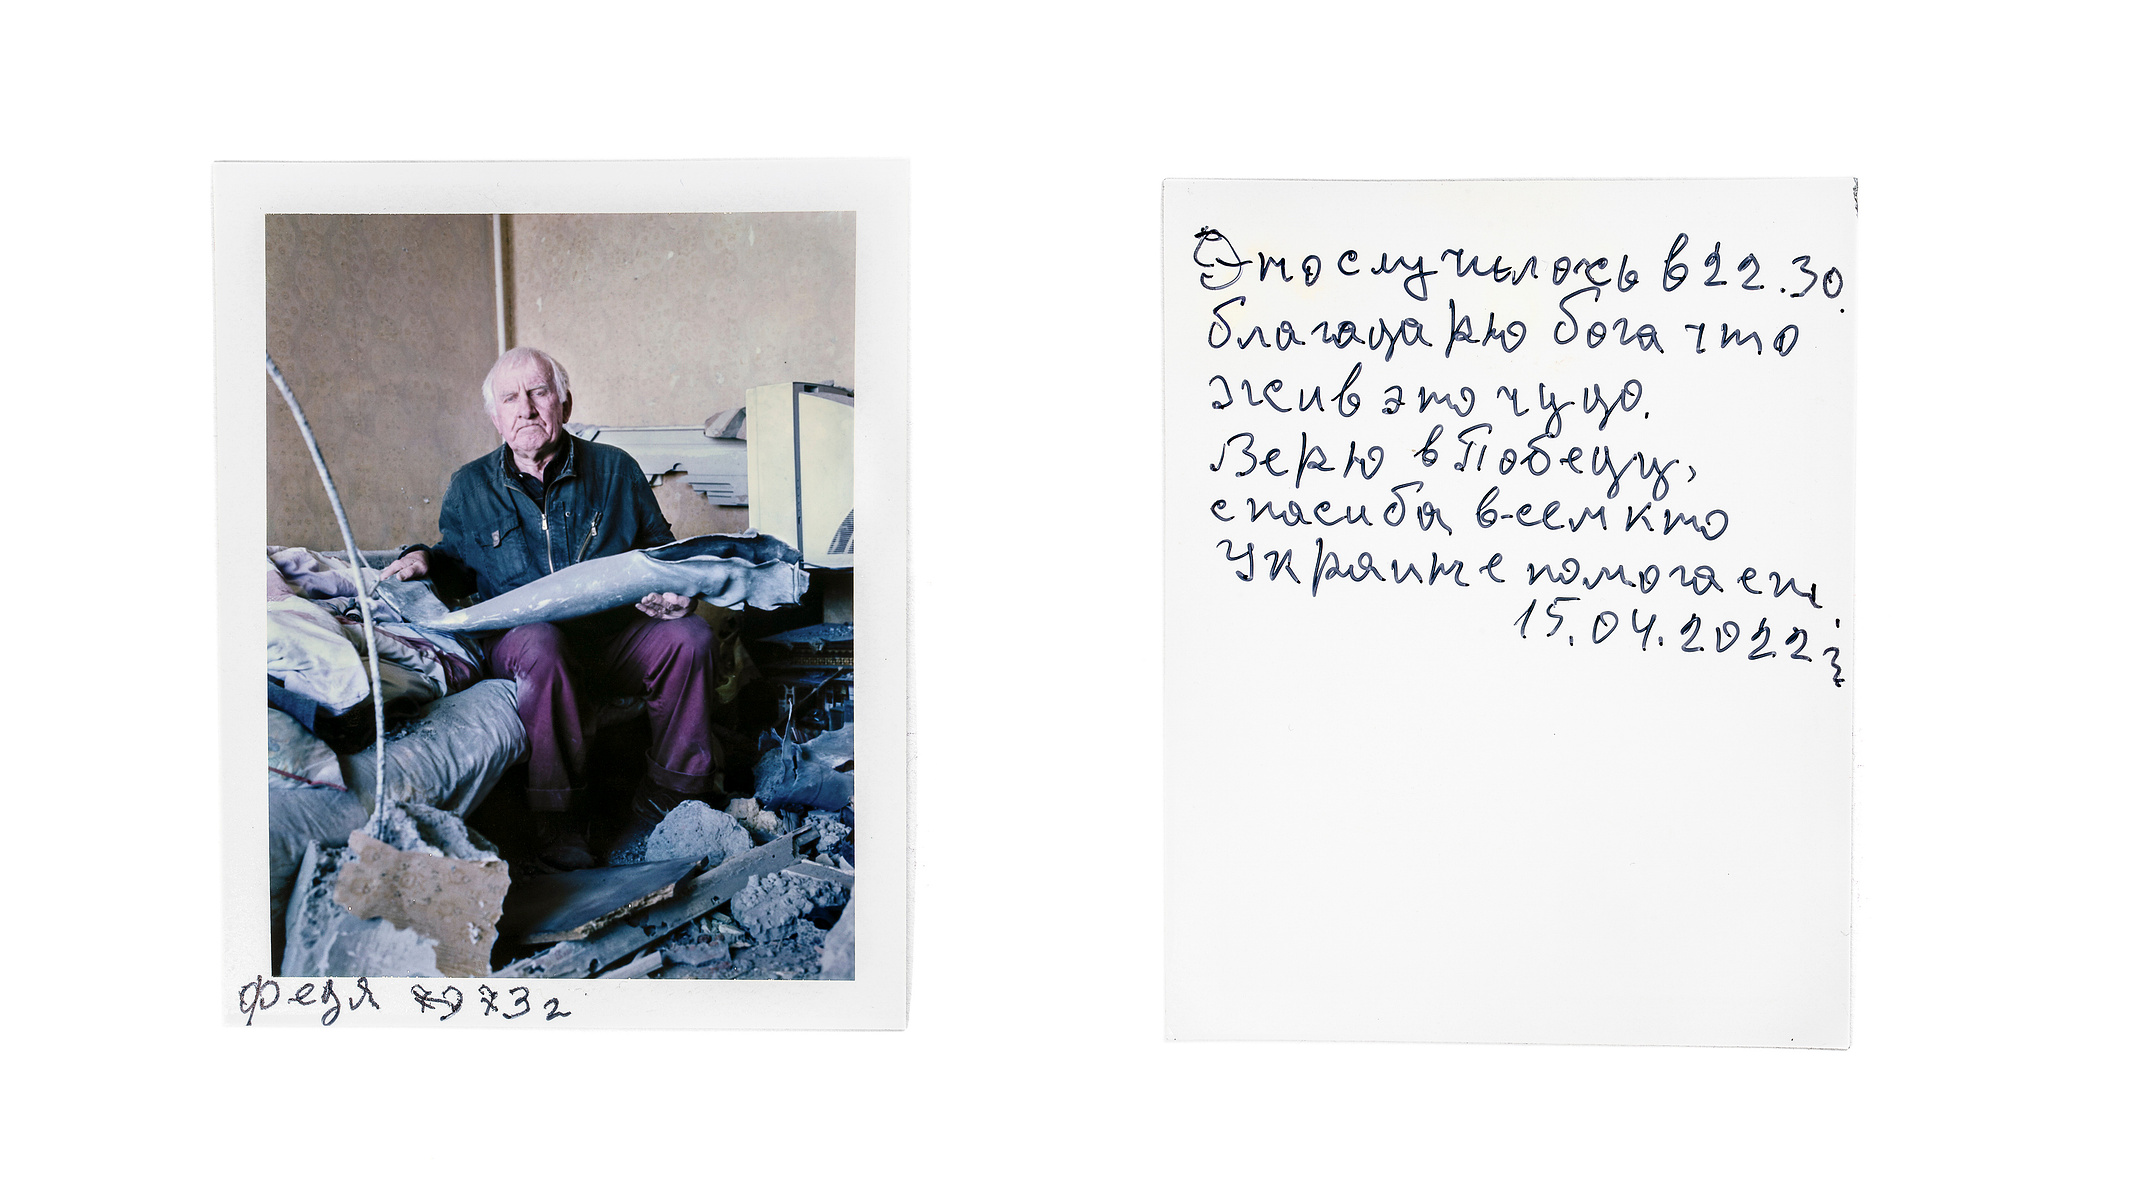 Федя 73 г
Это случилось в 22.30.
благадарю бога что
жив это чудо.
Верю в Победу,
спасиба всем кто
Украине помогает.
15.04.2022г